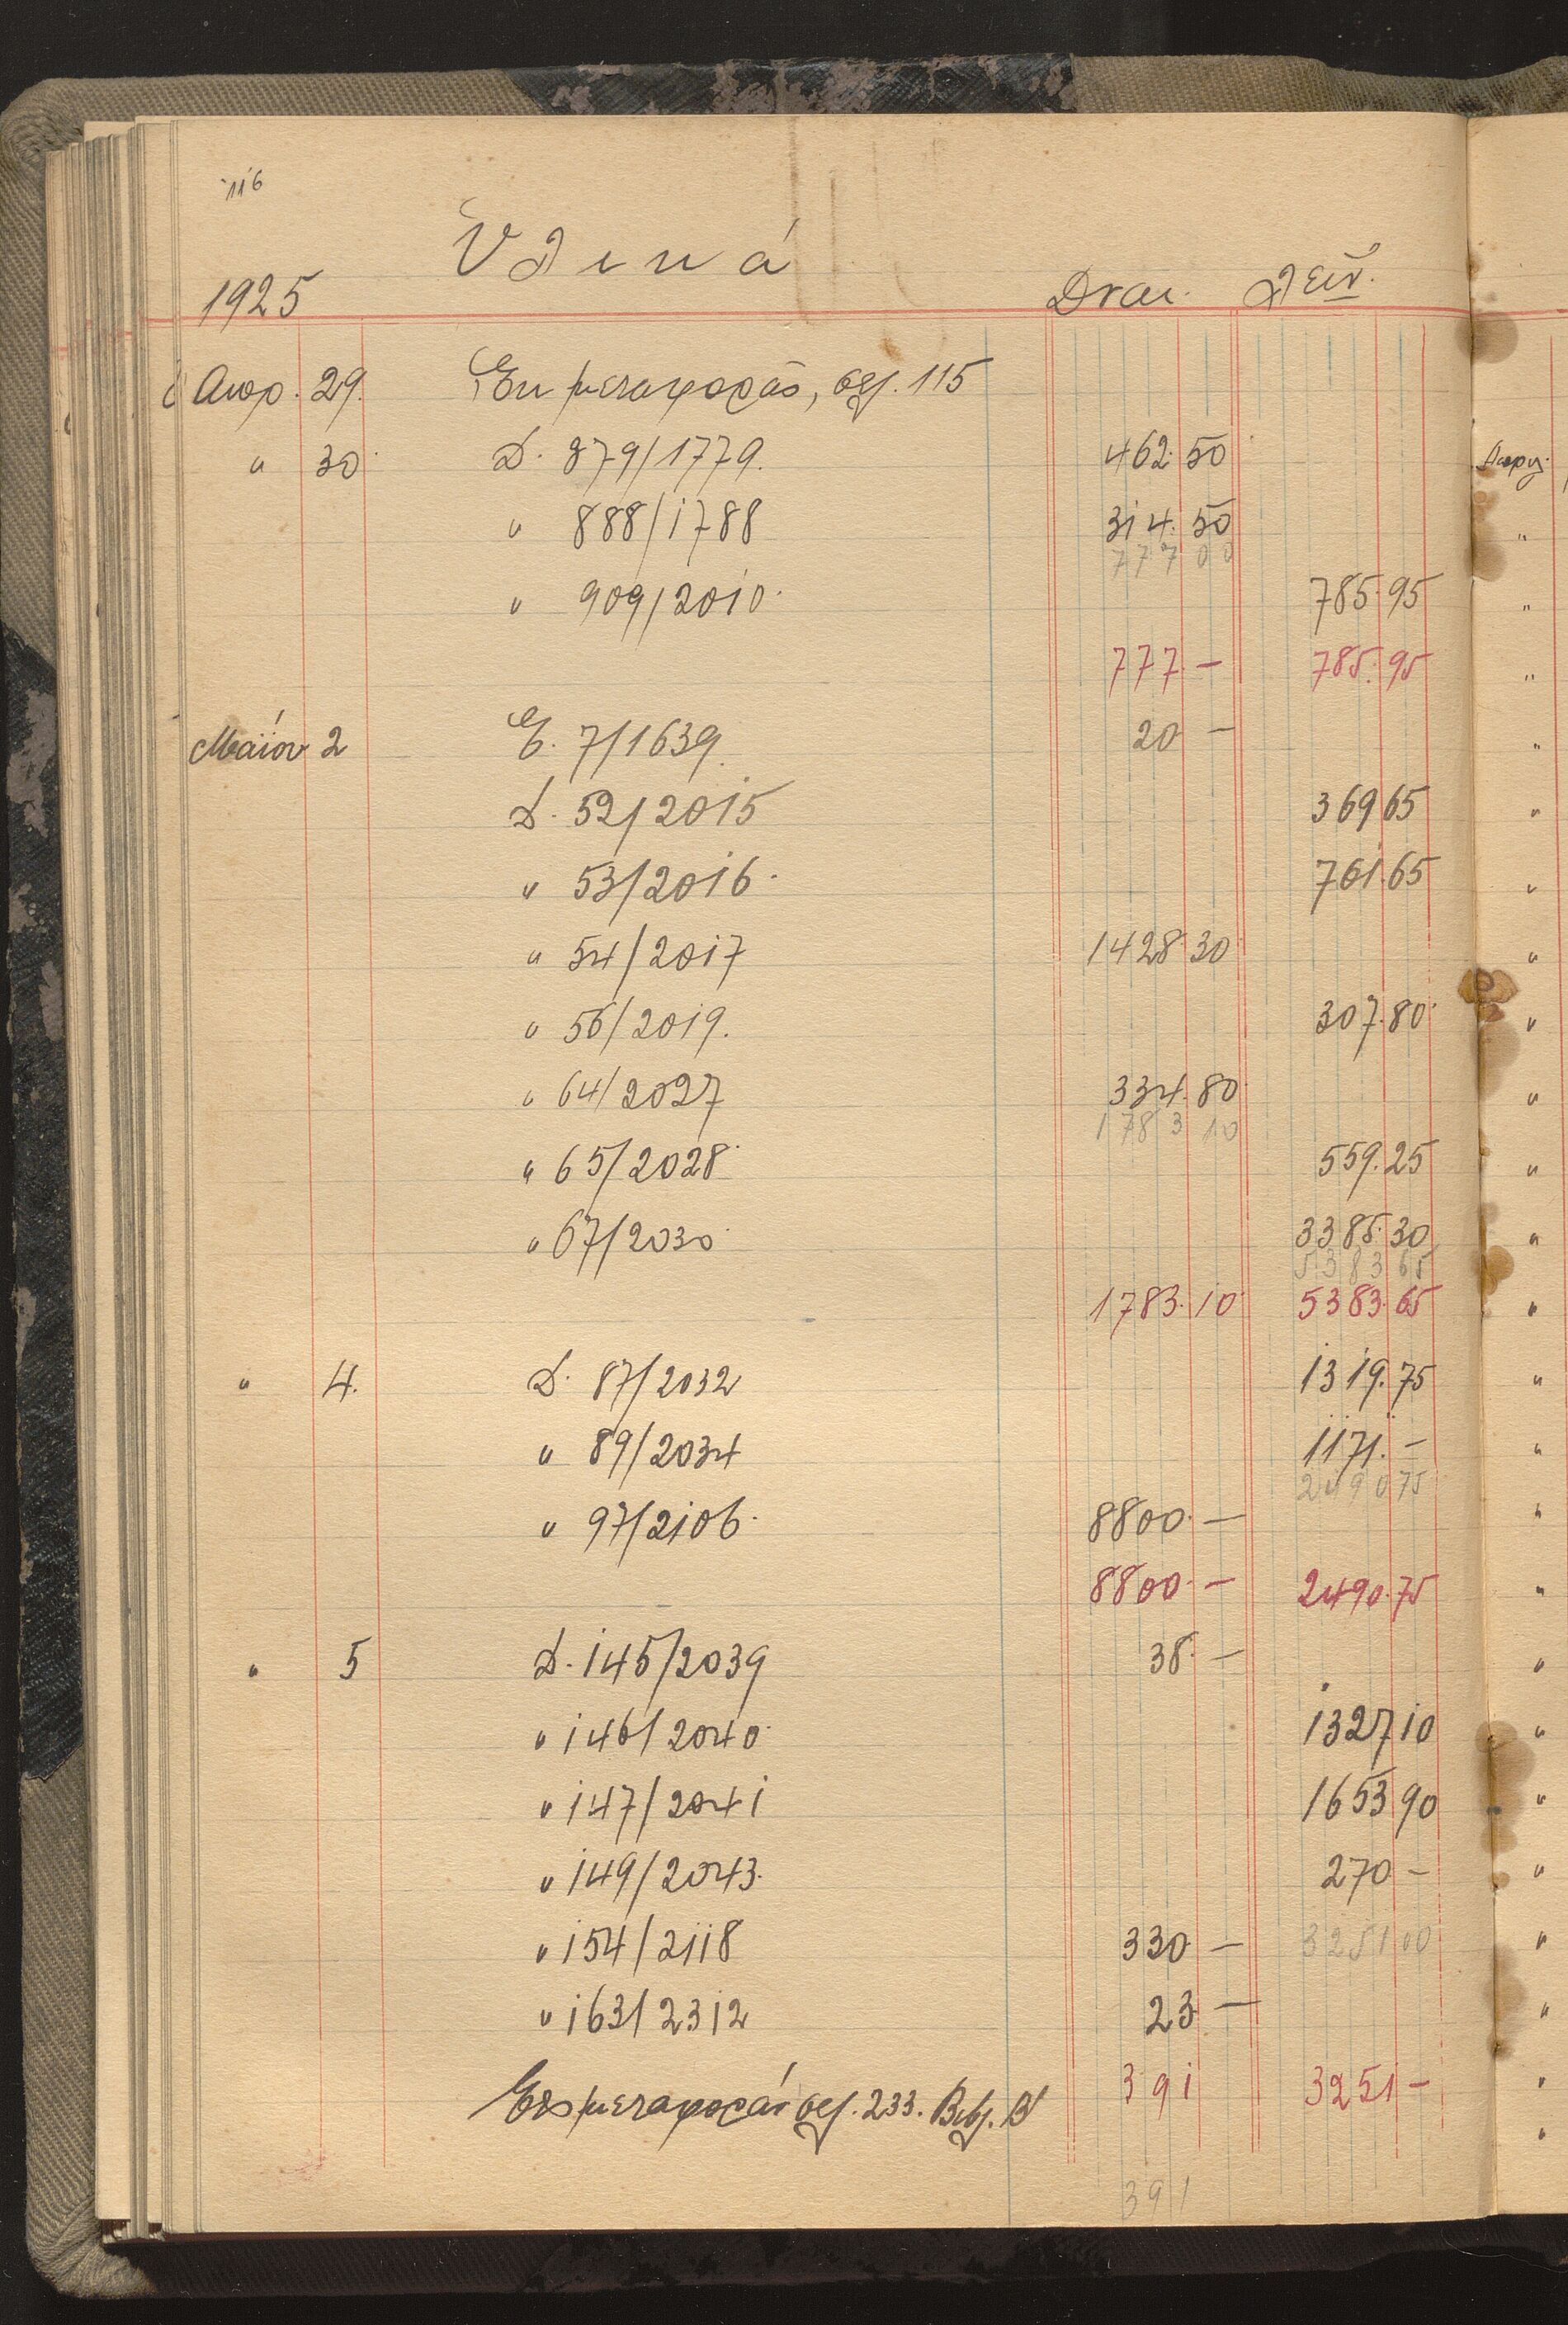 116
Ὑλικά
1925 Δναι. Λεῖν.
Ἀπρ. 29. Ἐκ μεταφορᾶς, σελ. 115
" 30 Δ. 879/1779. 462.50
" 888/1788 314.50
777 00
" 909/2010. 785.95
777 — 785.95
Μαΐου 2 Ε. 7/1639. 20 —
Δ. 52/2015 369 65
" 53/2016. 761.65
" 54/2017 1428 30
" 56/2019. 307.80
" 64/2027 334.80
1783 10
" 65/2028 559.25
" 67/2030 3385.30
5383 65
1783.10 5383.65
" 4. Δ. 87/2032 1319.75
" 89/2034 1171. —
2490 75
" 97/2106. 8800 —
8800 — 2490.75
" 5 Δ. 145/2039 38. —
" 146/2040 1327 10
" 147/2041 1653 90
" 149/2043. 270 —
" 154/2118 330 — 3251 00
" 163/2312 23 —
Εἰς μεταφοράν σελ. 233. Βιβλ. Β' 391 3251 —
391
Απριλ.